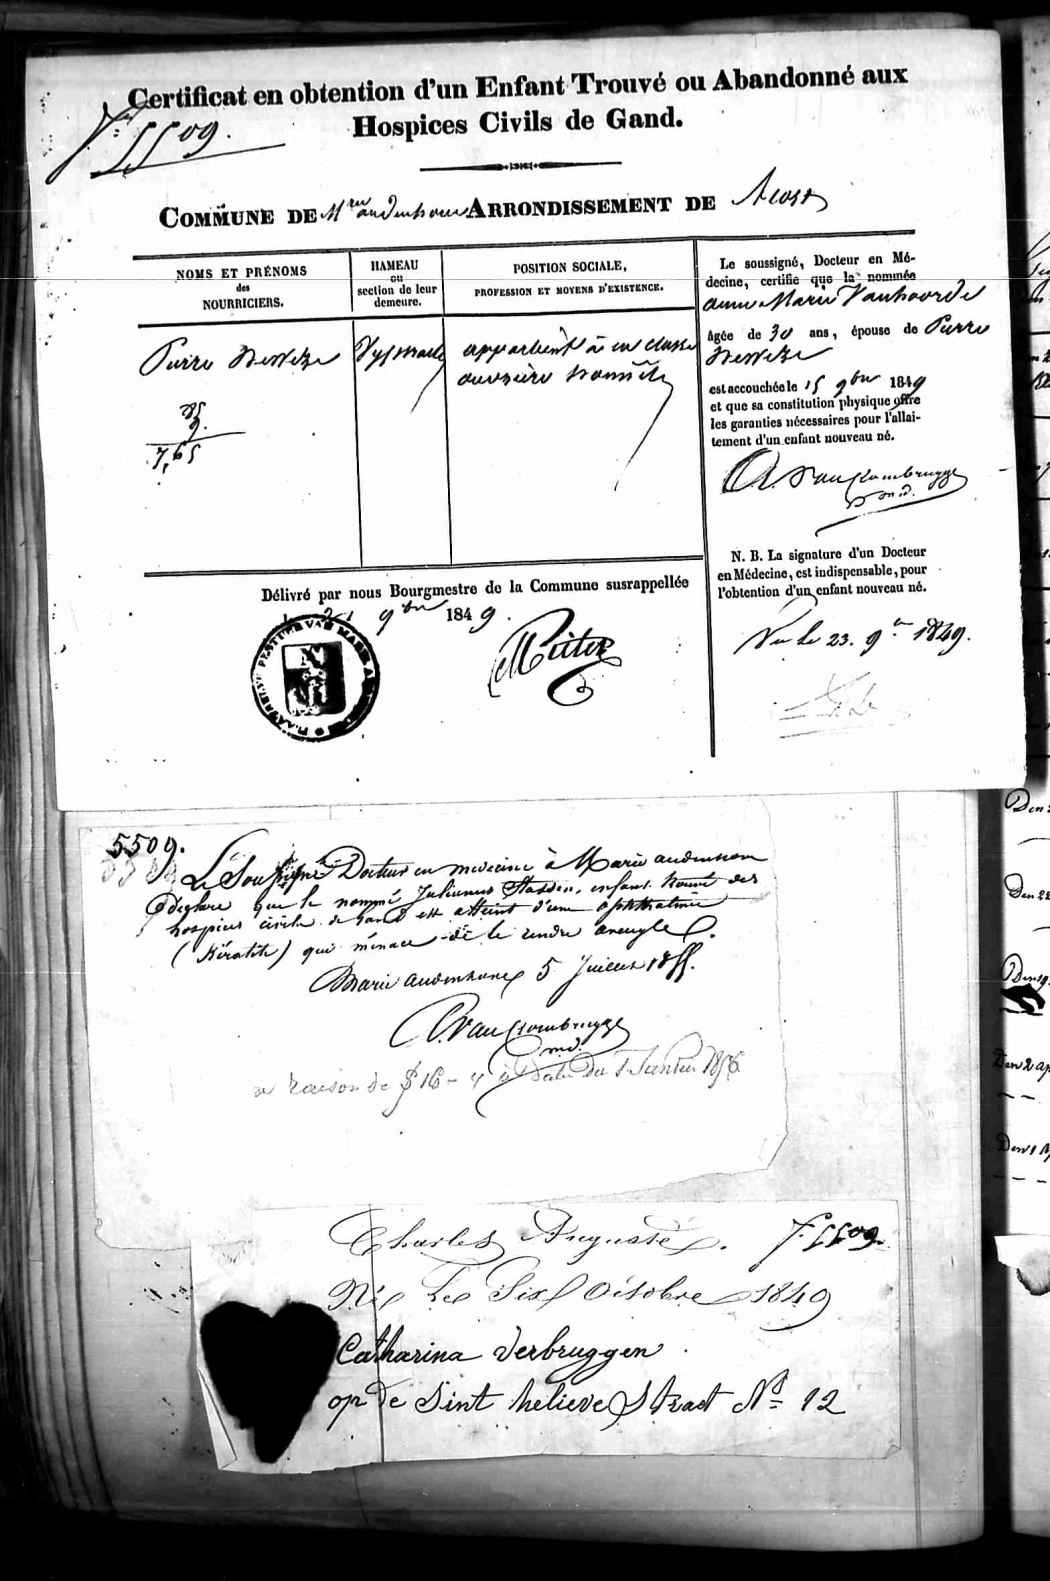 Certificat en obtention d'un Enfant Trouvé ou Abandonné aux
Hospices Civils de Gand.
5509.
COMMUNE DE Mrie audenhove ARRONDISSEMENT DE Alost
NOMS ET PRÉNOMS
des
NOURRICIERS.
HAMEAU
ou
section de leur
demeure.
POSITION SOCIALE,
PROFESSION ET MOYENS D'EXISTENCE.
Pierre
appartient à la classe
ouvrière honnête
85
9.
7,65
Le soussigné, Docteur en Mé-
decine, certifie que la nommée
anne Marie Vanhoorde
âgée de 30 ans, épouse de Pierre
est accouchée le 15 9bre 1849
et que sa constitution physique offre
les garanties nécessaires pour l'allai-
tement d'un enfant nouveau né.
Van Crombrugge
md.
N. B. La signature d'un Docteur
en Médecine, est indispensable, pour
l'obtention d'un enfant nouveau né.
Vu le 23. 9bre 1849.
Délivré par nous Bourgmestre de la Commune susrappellée
le 21 9bre 1849.
5509.
Le Soussigné Docteur en médecine à Marie audenhove
Déclare que le nommé Julianus Stassen, enfant trouvé des
hospices civils de Gand est atteint d'une ophthalmie
(Kératite) qui ménace de le rendre aveugle.
Marie audenhove 5 Juillet 1855.
Van Crombrugge
md.
a raison de 16 - à Date du 1 Janvier 1856
Charles Auguste. 5509
Né Le Six Octobre 1849
Catharina Verbruggen
op de Sint helieve Straat No 12